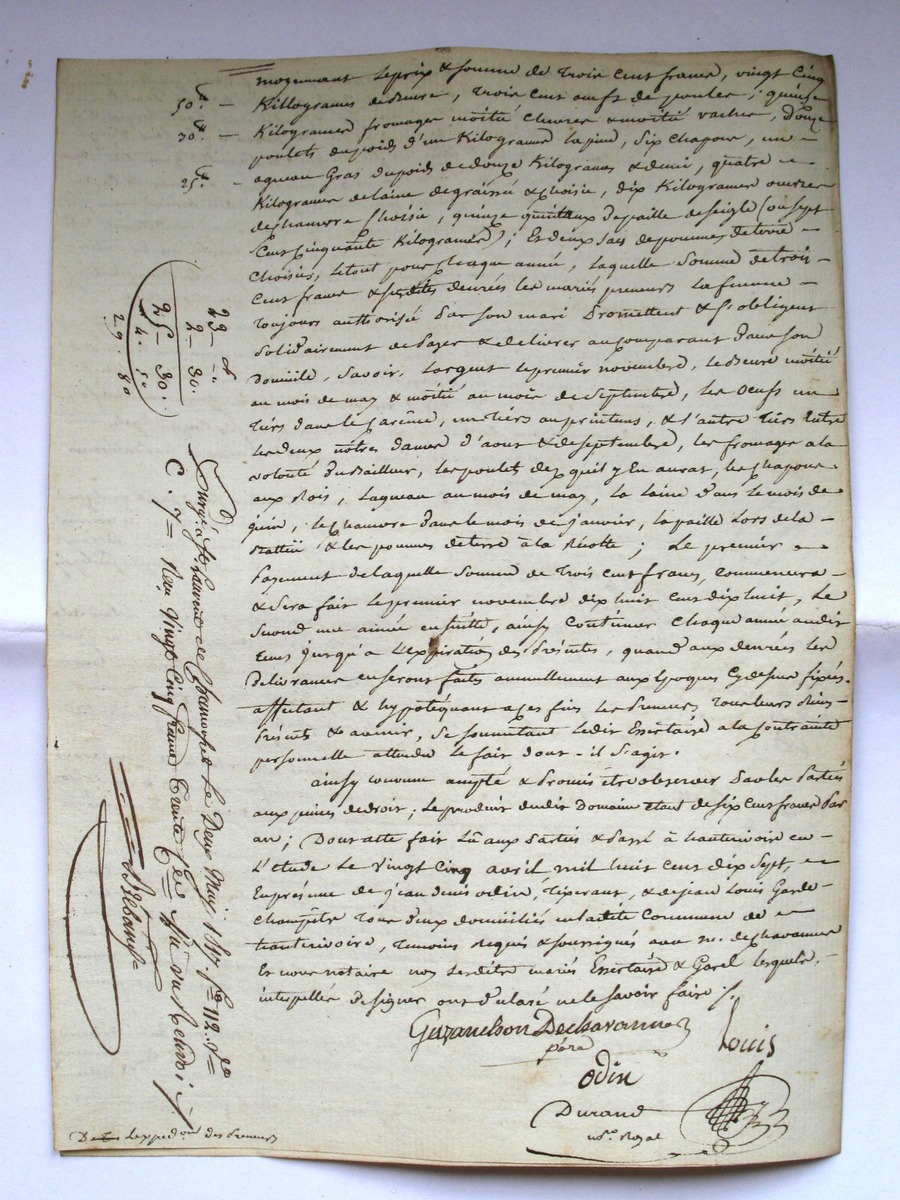 moyennant le prix & somme de trois cent francs, vingt cinq
50.# — Killogrames de beurre, trois cent œufs de poules ; quinze
30# — Kilogrames fromages moitié chevres & moitié vaches, douze
poulets du poids d'un Kilograme la pair, six chapons, un —
25# - agneau Gras du poids de douze Kilogrames & demi, quatre —
Kilogrames de laine degraissé & choisie, dix Kilogrames
de chanvre choisie, quinze quintaux de paille de seigle (ou sept
cent cinquante Kilogrames) ; Et deux sacs de pommes de terre —
choisies, le tout pour chaque année, laquelle somme de trois —
cent francs & susdites denrées les mariés preneurs la femme —
toujours authorisée par son mari Promettent & s'obligent
solidairement de Payer & de delivrer au comparant dans son
Domicile, savoir, l'argent le premier novembre, le beurre moitié
au mois de may & moitié au mois de septembre, les œufs un
tiers dans le Carême, un tiers au printems, & l'autre tiers Entre
les deux nôtres dames d'aout & de septembre, les fromages a la
volonté du Bailleur, les poulets dès qu'il y En aura, les chapons
aux Rois, l'agneau au mois de may, la laine dans le mois de
juin, le chanvre dans le mois de janvier, la paille lors de la —
& les pommes de terre à la Récolte ; Le premier —
Payement de laquelle somme de trois cent francs, commencera —
& sera fait le premier novembre dix huit cent dix huit, Le
second une année ensuitte, ainsy continuer chaque année audit
tems jusqu'a l'expiration des Présentes, quand aux denrées les
Delivrances en seront faites annuellement aux Epoques Cy dessus fixées.
affectant & hypotéquant a ces fins les Preneurs tous leurs biens
Présents & avenir, se soumettant ledit Essertaise a la contrainte
personnelle attendu le fait dont - il s'agit.
ainsy convenu accepté & Promis être observer Par les Parties
aux peines de droit ; le produit dudit Domaine étant de six cent francs Par
an ; Dont acte fait Lû aux Parties & Passé à hauterivoire en —
L'étude Le vingt Cinq avril mil huit cent dix sept, —
En présence de jean denis odin, Tixerant, & de jean Louis Garde-
champêtre tous deux domiciliés en ladite Commune de —
hauterivoire, temoins Requis & soussignés avec mr. de chavannes
Et nous notaire non lesdits mariés Essertaise & Garel lesquels. —
interpellés de signer ont déclaré ne le savoir faire ./.
Dechavannes
père
Louis
odin
Durand
nre. Royal
23 -
2 - 30.
25 - 30.
4. 50
29. 80
Enregé. à St. Laurent de Chamousset Le Deux May. 1817. fo. 112.
C. 7 = Reçu Vingt Cinq francs trente Ces =
L'expedon. des Preneurs